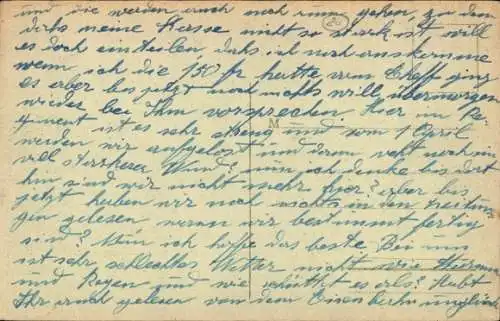 und die werden auch noch rum gehen, zu dem
dass meine Kasse nicht so stark ist will
es doch einteilen dass ich noch auskomme
wenn ich die 150 fr hätte vom Cheff ging
es aber bis jetzt noch nichts will übermorgen
wieder bei Ihm vorsprechen. Hier im Re-
giment ist es sehr streng und vom 1 April
werden wir aufgelöst und dann weht noch ein
viel stärkerer Wind? nun ich denke bis dort
hin sind wir nicht mehr hier? aber bis
jetzt haben wir noch nichts in den Zeitun-
gen gelesen wann wir bestimmt fertig
sind? Nun ich hoffe das beste Bei uns
ist sehr schlechtes Wetter nichts wie Stürme
und Regen und wie schüttet es als? Habt
Ihr auch gelesen von dem Eisenbahn unglück
M